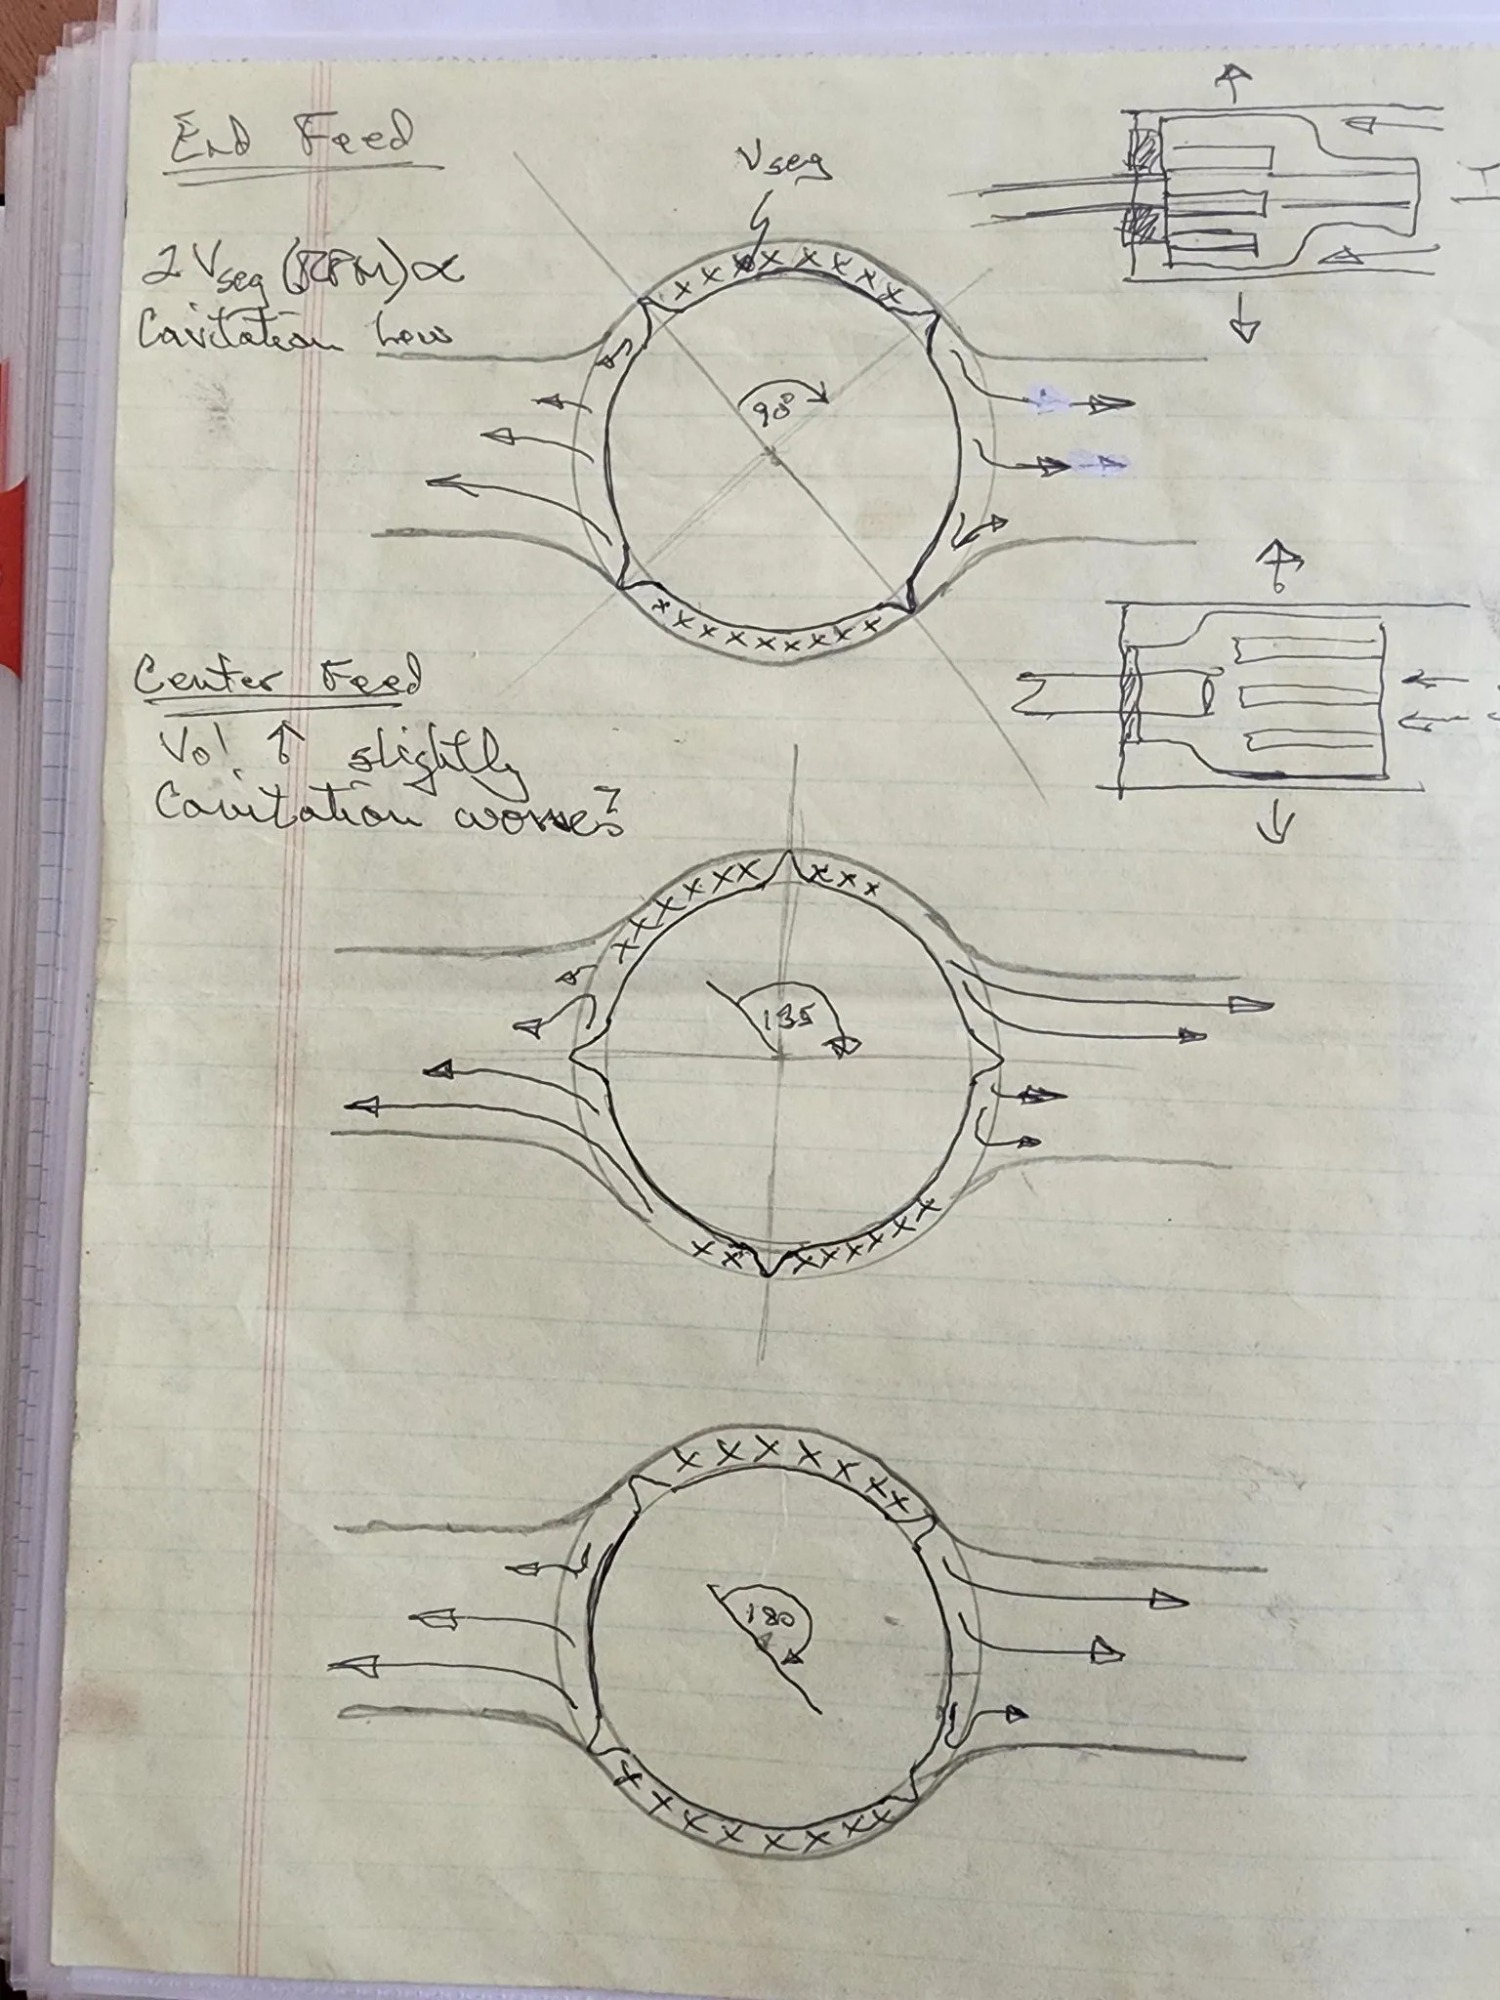 End Feed
Vseg
2 Vseg (RPM) ∝
Cavitation Low
90°
Center Feed
Vol ↑ slightly
Cavitation worse?
135
180